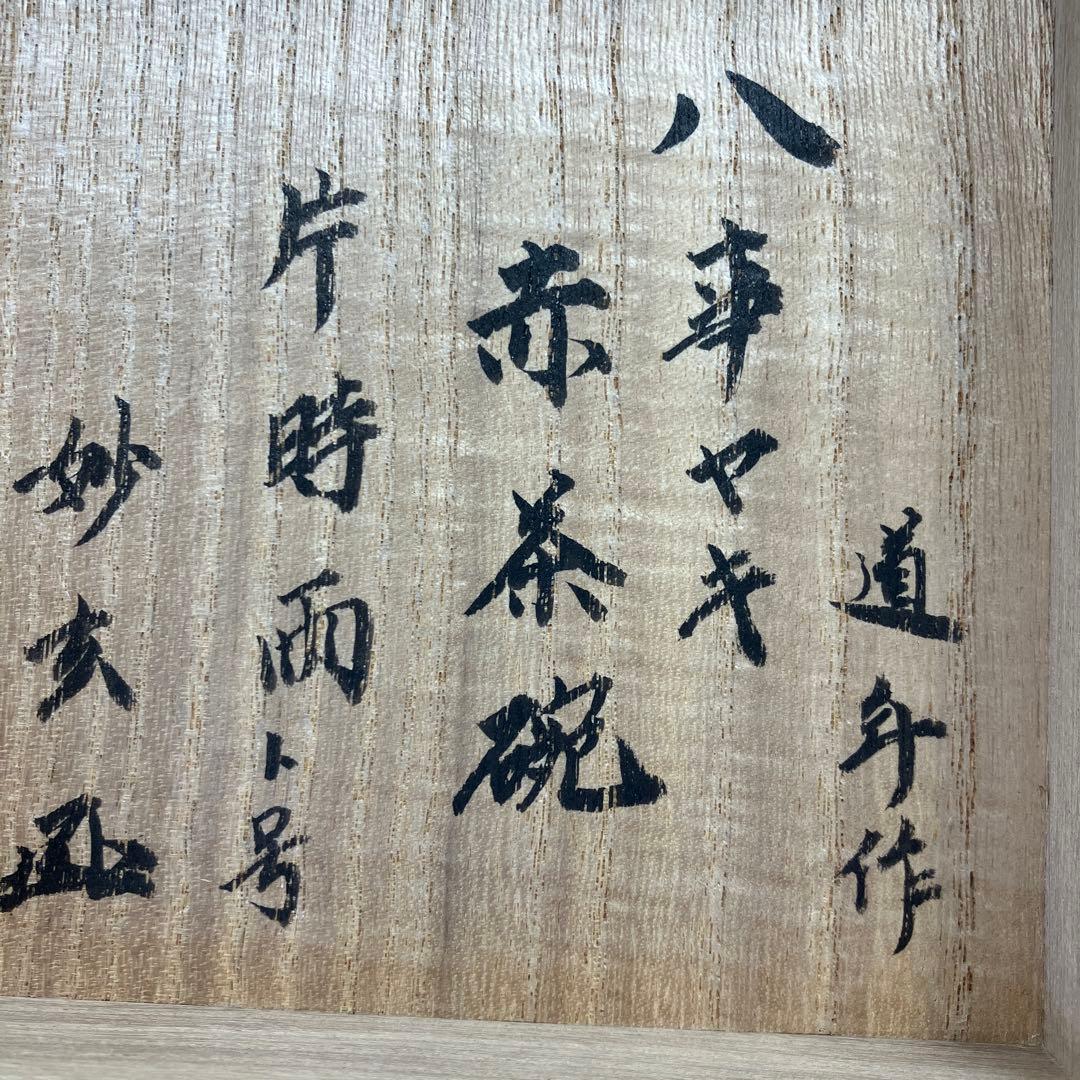 道年作
八事ヤキ
赤茶碗
片時雨ト号
妙玄